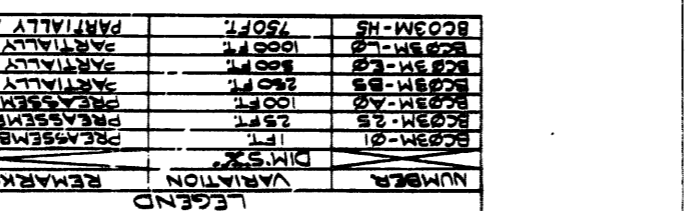 LEGEND
NUMBER VARIATION REMARK
DIM'S."X"
BCØ3M-Ø1 1FT. PREASSEMB
BCØ3M-25 25FT. PREASSEME
BCØ3M-AØ 100FT. PREASSEM
BCØ3M-B5 250 FT. PARTIALLY
BCØ3M-EØ 500 FT. PARTIALLY
BCØ3M-LØ 1000 FT. PARTIALLY
BC03M-H5 750FT. PARTIALLY